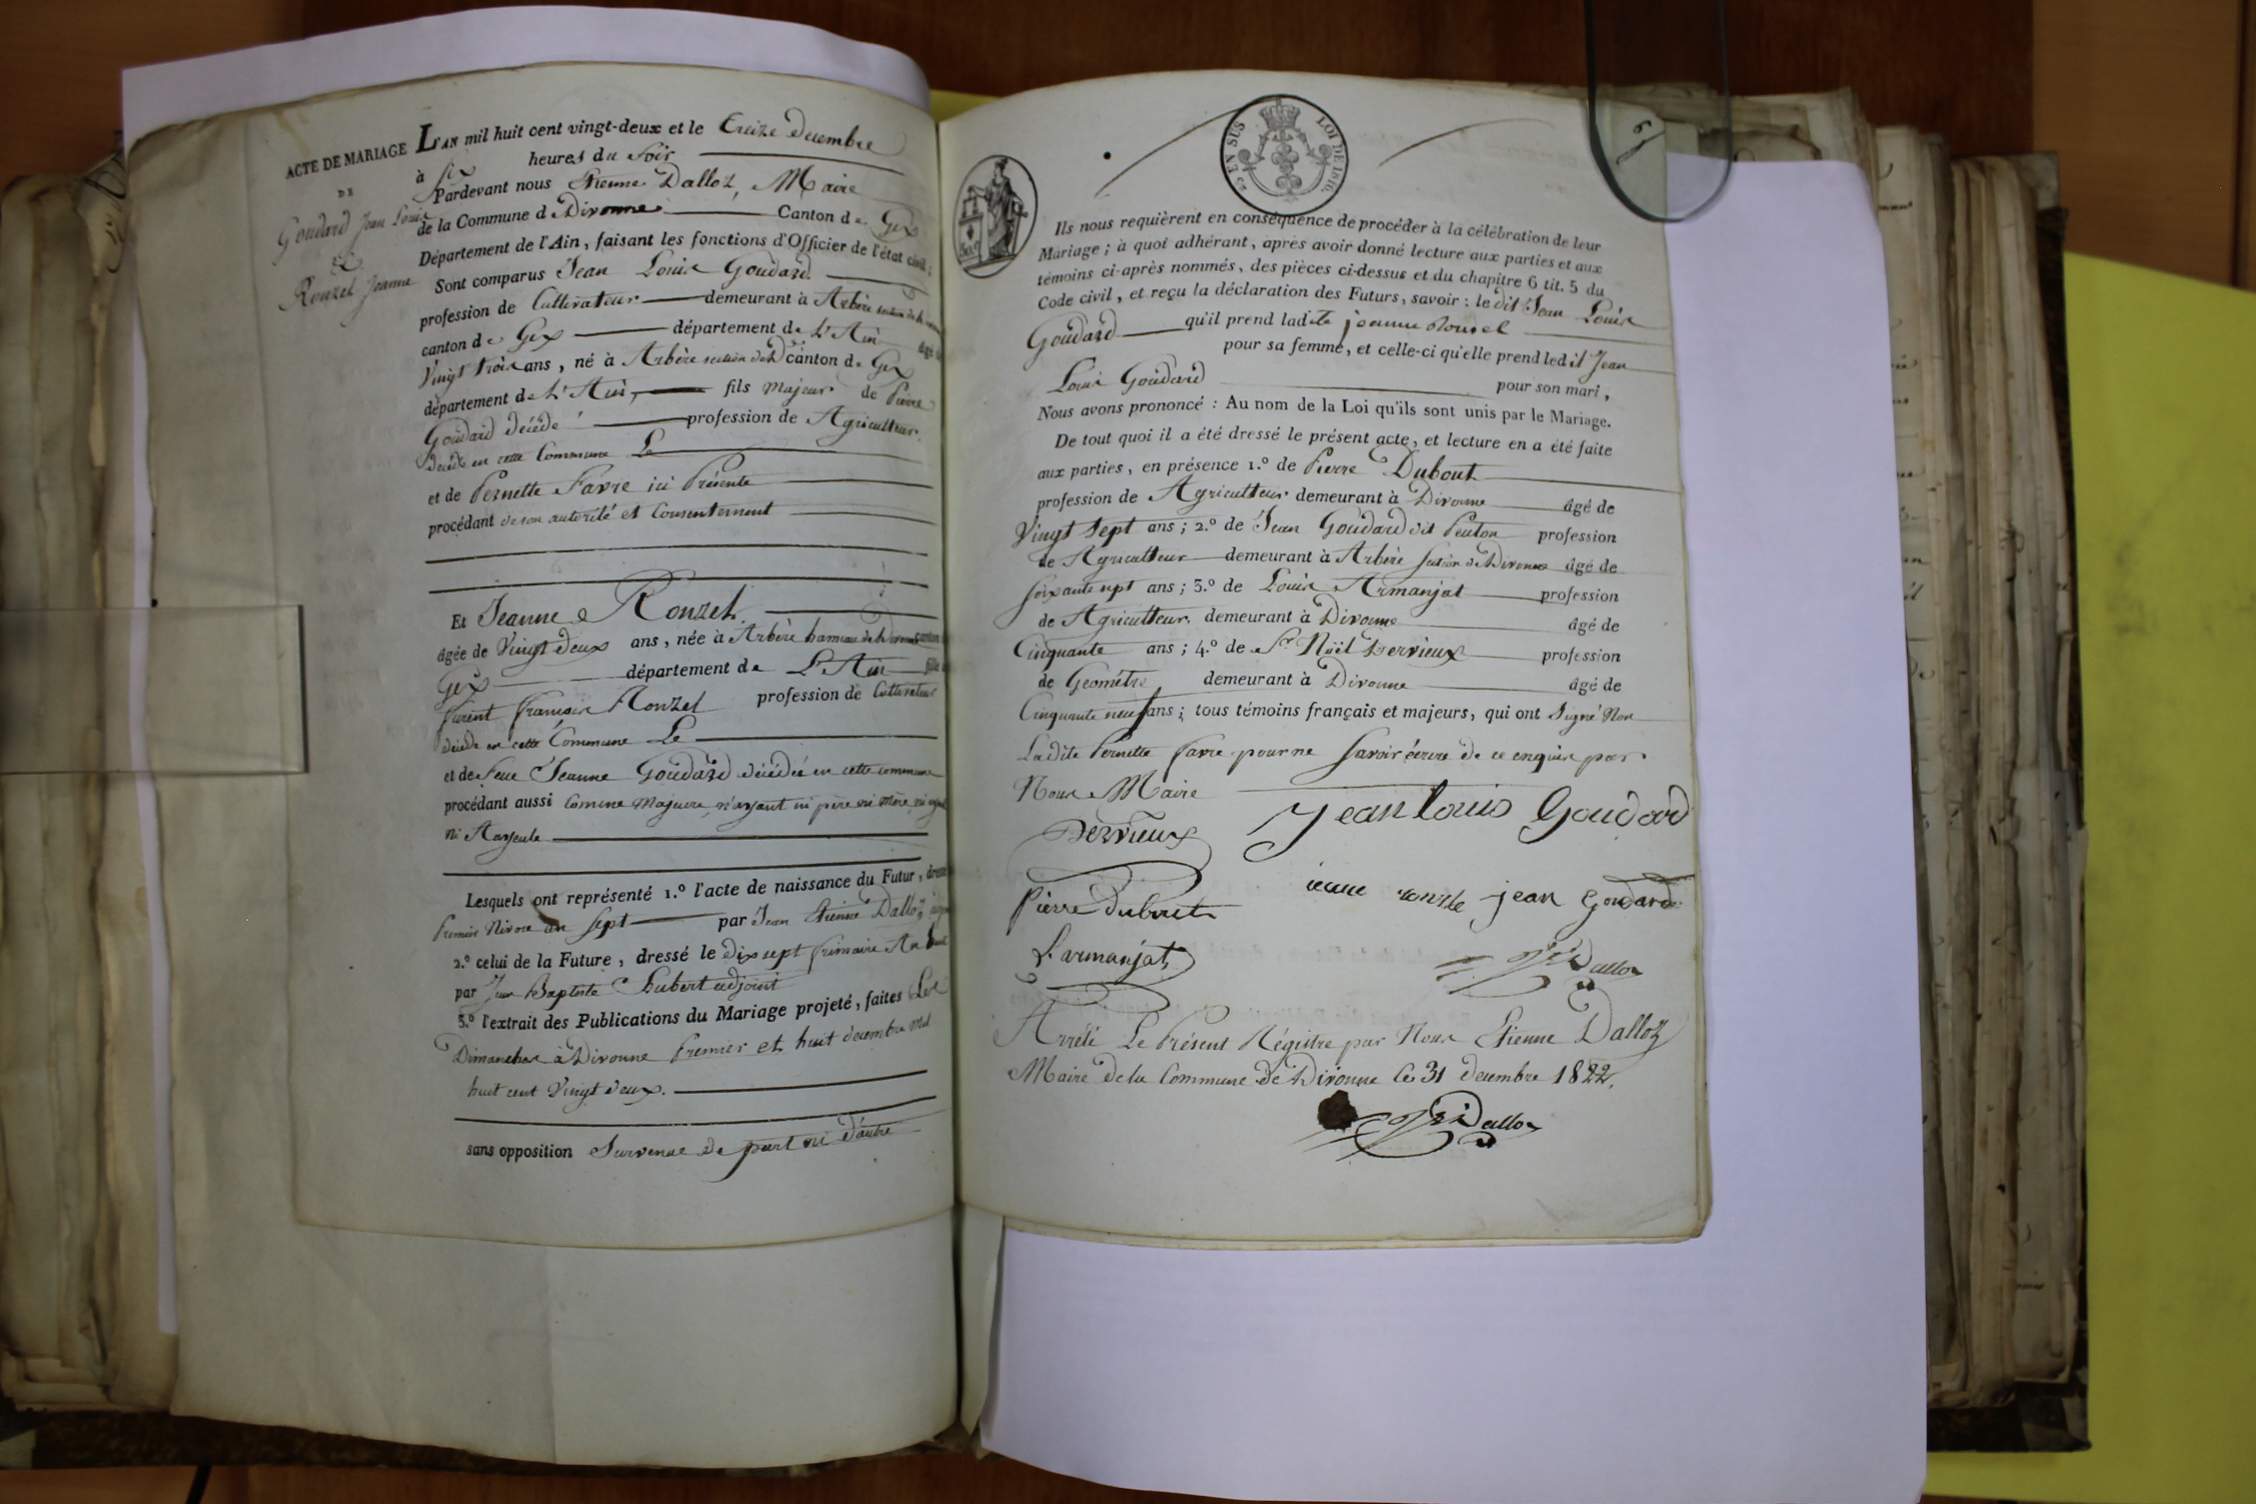 ACTE DE MARIAGE
DE
Goudard Jean Louis
et
Ronzel Jeanne
L'AN mil huit cent vingt-deux et le Treize decembre
à Six heures du Soir
Pardevant nous Etienne Dalloz, Maire
de la Commune d Divonne Canton de Gex
Département de l'Ain, faisant les fonctions d'Officier de l'état civil;
Sont comparus Jean Louis Goudard
profession de Cultivateur demeurant à Arbère section de Divonne
canton de Gex département de L'Ain âgé de
Vingt trois ans, né à Arbère section de D canton de Gex
département de L'Ain, fils Majeur de Pierre
Goudard décédé profession de Agriculteur
décédé en cette Commune Le
et de Pernette Favre ici Présente
procédant de son autorité et Consentement
Et Jeanne Ronzel.
âgée de Vingt deux ans, née à Arbère hameau de Divonne canton
Gex département de L'Ain fille
François Ronzel profession de Cultivateur
décédé en cette Commune Le
et de feue Jeanne Goudard décédée en cette commune
procédant aussi Comme Majeure, n'ayant ni père ni mère ni ayeul
ni Aayeule
Lesquels ont représenté 1.º l'acte de naissance du Futur, dressé
Premier Nivose an Sept par Jean Etienne Dalloz
2.º celui de la Future, dressé le dix sept frimaire An huit
par Jean Baptiste Hubert adjoint
3.º l'extrait des Publications du Mariage projeté, faites Les
Dimanches à Divonne Premier et huit decembre mil
huit cent Vingt deux.
sans opposition Survenue de part ni d'autre
EN SUS
LOI DE 1816.
Ils nous requièrent en conséquence de procéder à la célébration de leur
Mariage; à quoi adhérant, après avoir donné lecture aux parties et aux
témoins ci-après nommés, des pièces ci-dessus et du chapitre 6 tit. 5 du
Code civil, et reçu la déclaration des Futurs, savoir: le dit Jean Louis
Goudard qu'il prend ladite jeanne Ronzel
pour sa femme, et celle-ci qu'elle prend ledit Jean
Louis Goudard pour son mari,
Nous avons prononcé: Au nom de la Loi qu'ils sont unis par le Mariage.
De tout quoi il a été dressé le présent acte, et lecture en a été faite
aux parties, en présence 1.º de Pierre Dubout
profession de Agriculteur demeurant à Divonne âgé de
Vingt Sept ans; 2.º de Jean Goudard dit Peuton profession
de Agriculteur demeurant à Arbère Section de Divonne âgé de
Soixante sept ans; 3.º de Louis Armanjat profession
de Agriculteur demeurant à Divonne âgé de
Cinquante ans; 4.º de Sr Noël Dervieux profession
de Géomètre demeurant à Divonne âgé de
Cinquante neuf ans; tous témoins français et majeurs, qui ont Signé Non
Ladite Pernette Favre pour ne Savoir écrire de ce enquise par
Nous Maire
jean louis Goudard
Dervieux
jeanne ronzele jean Goudard
Pierre Dubout
L. armanjat
Dalloz
Arrêté Le Présent Régistre par Nous Etienne Dalloz
Maire de la Commune de Divonne Le 31 decembre 1822.
Dalloz